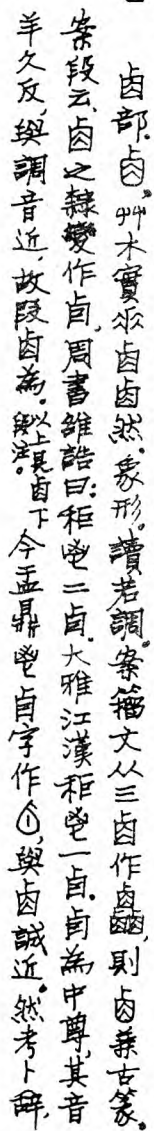 卥部。卥,艸木實垂卥卥然。象形。讀若調。案籀文从三卥作𠧪,則卥兼古篆。
案段云、卥之隸變作卣,周書雒誥曰:秬鬯二卣。大雅江漢秬鬯一卣。卣為中尊,其音
羊久反,與調音近,故叚卥為。以上見卥下段注。今盂鼎鬯卣字作,與卥誠近。然考卜辭,